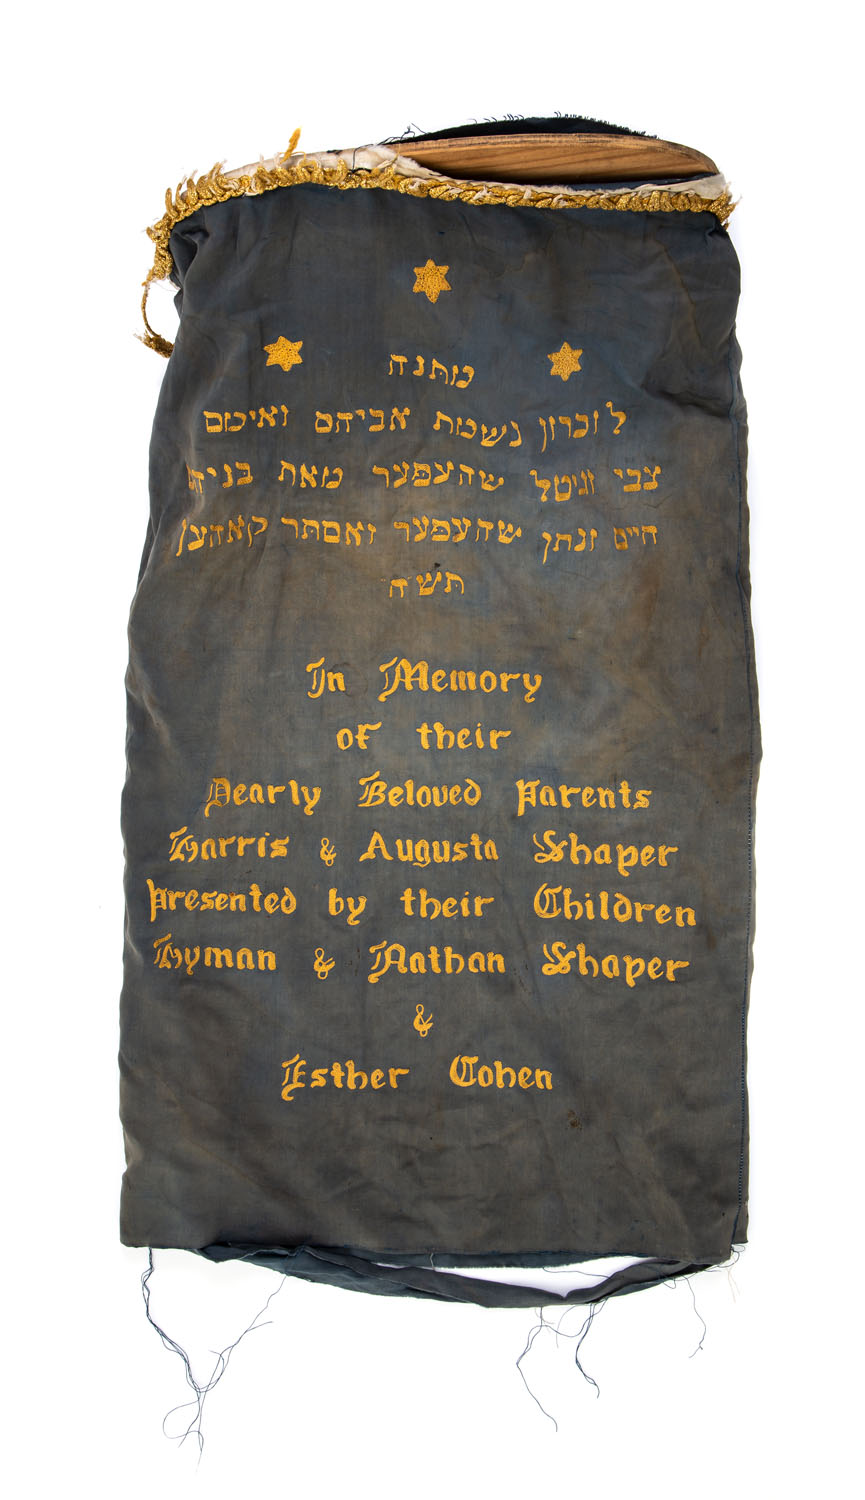 מתנה
לזכרון נשמת אביהם ואימם
צבי וגיטל שהעפער מאת בניהם
חיים ונתן שהעפער ואסתר קאהען
תש״ח
In Memory
of their
Dearly Beloved Parents
Harris & Augusta Shaper
Presented by their Children
Hyman & Nathan Shaper
&
Esther Cohen